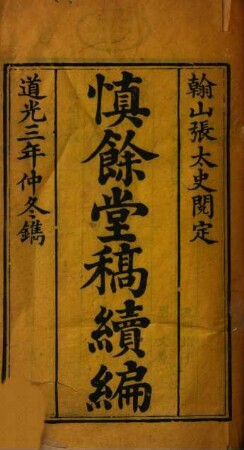 翰山張太史閱定
慎餘堂稿續編
道光三年仲冬鐫